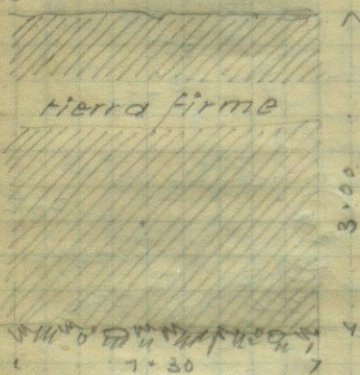 tierra firme
3.00
1.30